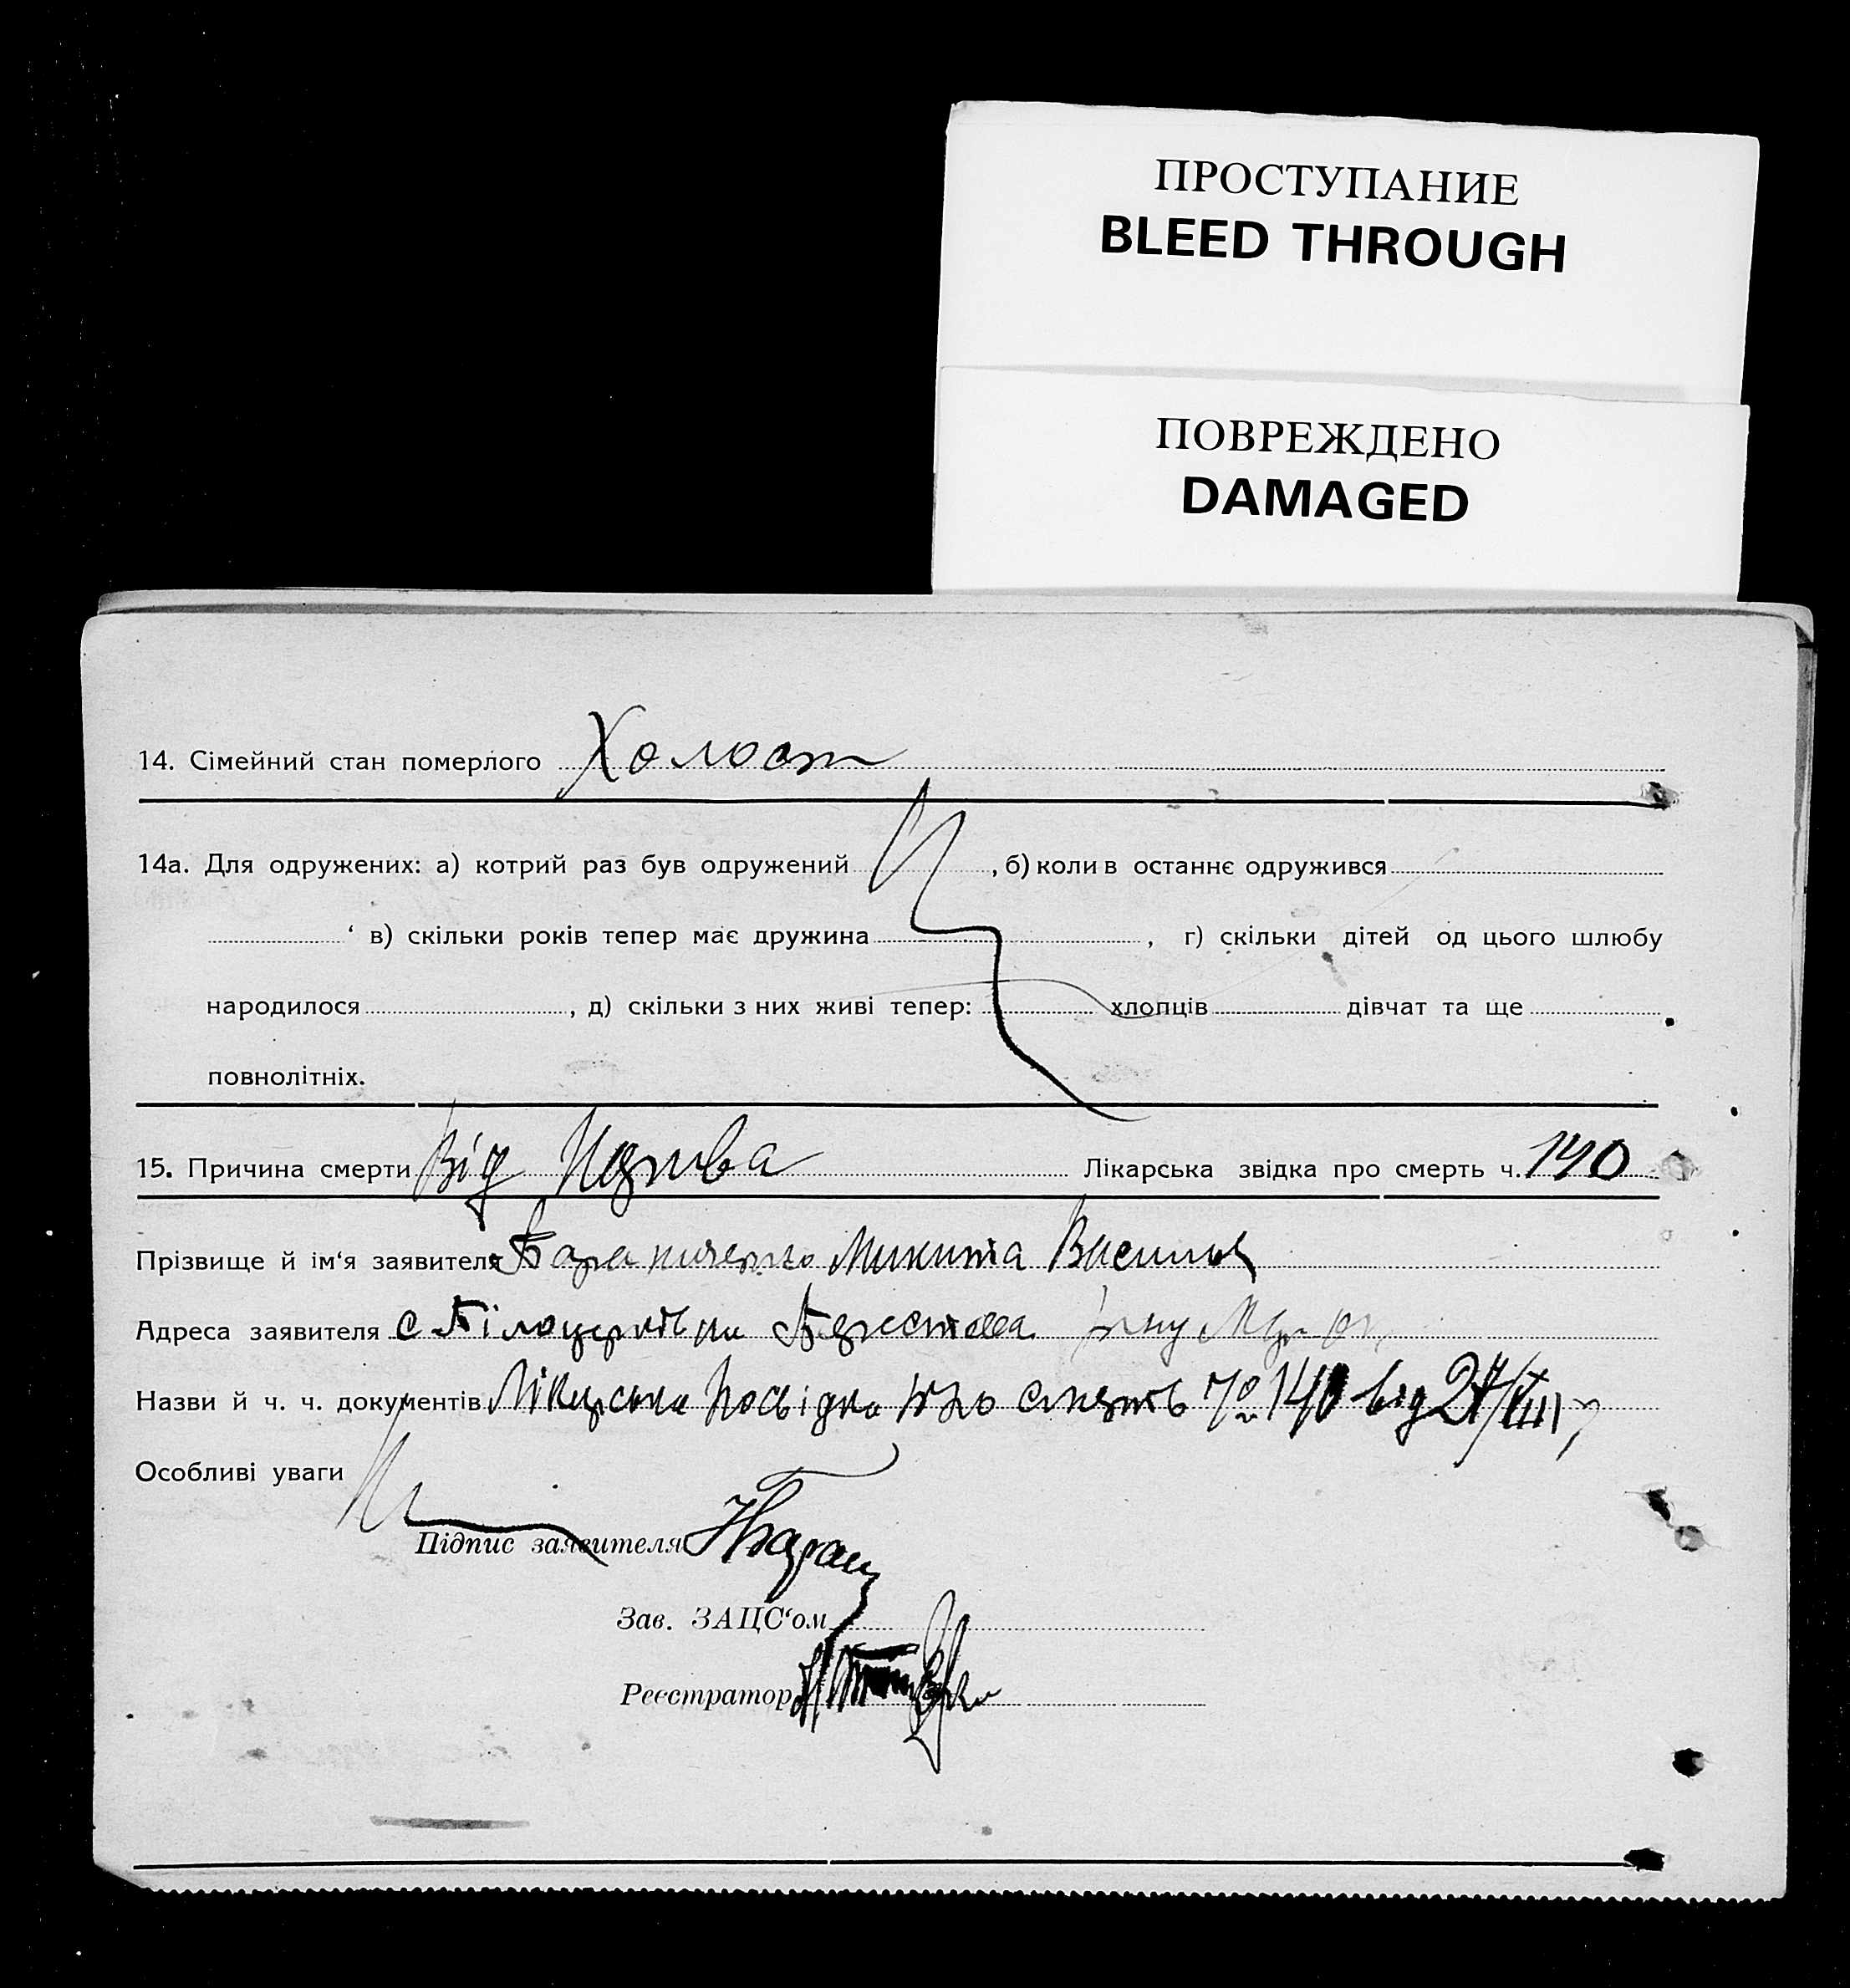 ПРОСТУПАНИЕ
BLEED THROUGH
ПОВРЕЖДЕНО
DAMAGED
14. Сімейний стан померлого Холост
14а. Для одружених: а) котрий раз був одружений , б) коли в останнє одружився
‘ в) скільки років тепер має дружина , г) скільки дітей од цього шлюбу
народилося , д) скільки з них живі тепер: хлопців дівчат та ще
повнолітніх.
15. Причина смерти Від Лікарська звідка про смерть ч. 140
Прізвище й ім‘я заявителя Микита Васильов
Адреса заявителя с Білоцерківка
Назви й ч. ч. документів Лікарська Посвідка про смерть № 140 від
Особливі уваги
Підпис заявителя
Зав. ЗАЦС‘ом
Реєстратор